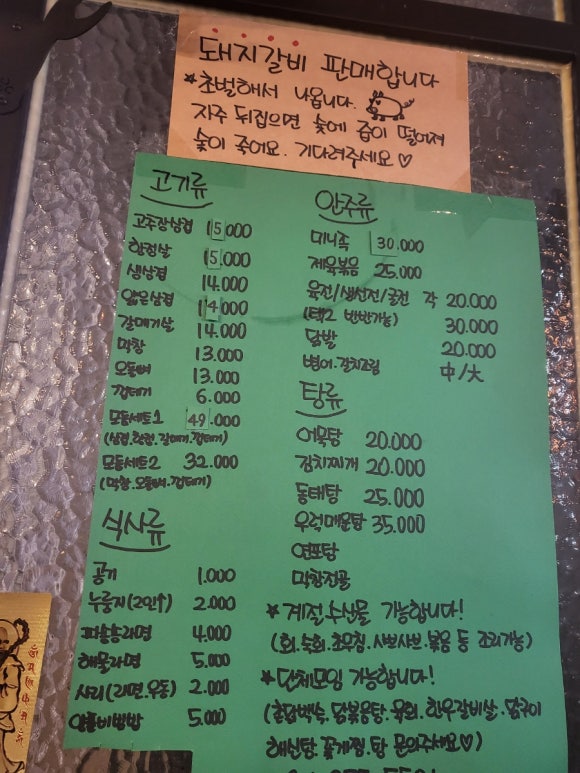 돼지갈비 판매합니다
★초벌해서 나옵니다.
자주 뒤집으면 숯에 곱이 떨어져
숯이 죽어요. 기다려주세요♡
고기류
고추장삼겹 15.000
항정살 15.000
생삼겹 14.000
얇은삼겹 14.000
갈매기살 14.000
막창 13.000
오돌뼈 13.000
껍데기 6.000
모둠세트1 49.000
(삼겹.항정.갈매기.껍데기)
모둠세트2 32.000
(막창.오돌뼈.껍데기)
식사류
공기 1.000
누룽지(2인↑) 2.000
파송송라면 4.000
해물라면 5.000
사리(라면.우동) 2.000
알밥비빔밥 5.000
안주류
미니족 30.000
제육볶음 25.000
육전/생선전/굴전 각 20.000
(택2 반반가능) 30.000
닭발 20.000
병어.갈치조림 中/大
탕류
어묵탕 20.000
김치찌개 20.000
동태탕 25.000
우럭매운탕 35.000
연포탕
막창전골
★계절 수산물 가능합니다!
(회.숙회.초무침.샤브샤브.볶음 등 조리가능)
★단체모임 가능합니다!
(촌닭백숙.닭볶음탕.육회.한우갈비살.닭구이
해신탕.꽃게찜.탕 문의주세요♡)